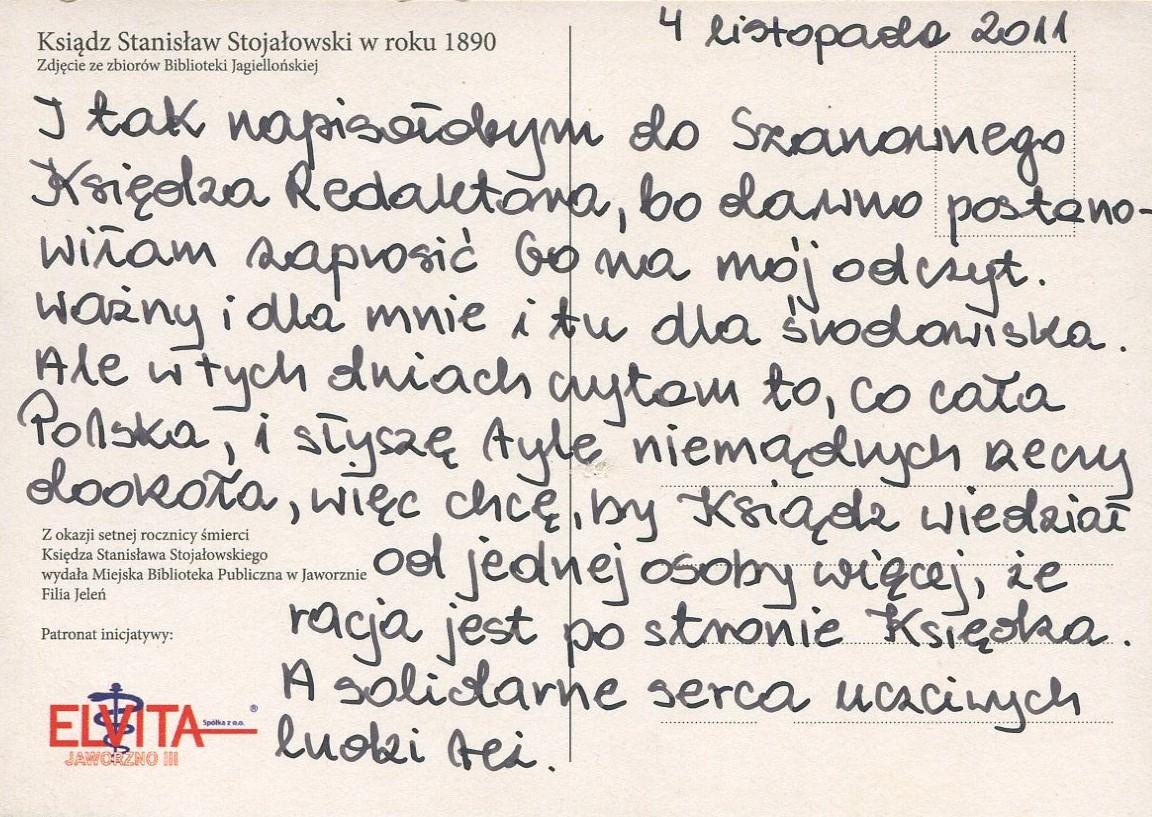 4 listopada 2011
Ksiądz Stanisław Stojałowski w roku 1890
Zdjęcie ze zbiorów Biblioteki Jagiellońskiej
I tak napisałabym do Szanownego
Księdza Redaktora, bo dawno postano-
wiłam zaprosić Go na mój odczyt.
ważny i dla mnie i tu dla środowiska.
Ale w tych dniach czytam to, co cała
Polska, i słyszę tyle niemądrych rzeczy
dookoła, więc chcę, by Ksiądz wiedział
od jednej osoby więcej, że
racja jest po stronie Księdza.
A solidarne serca uczciwych
ludzi też.
Z okazji setnej rocznicy śmierci
Księdza Stanisława Stojałowskiego
wydała Miejska Biblioteka Publiczna w Jaworznie
Filia Jeleń
Patronat inicjatywy:
ELVITA Spółka z o.o. ®
JAWORZNO III